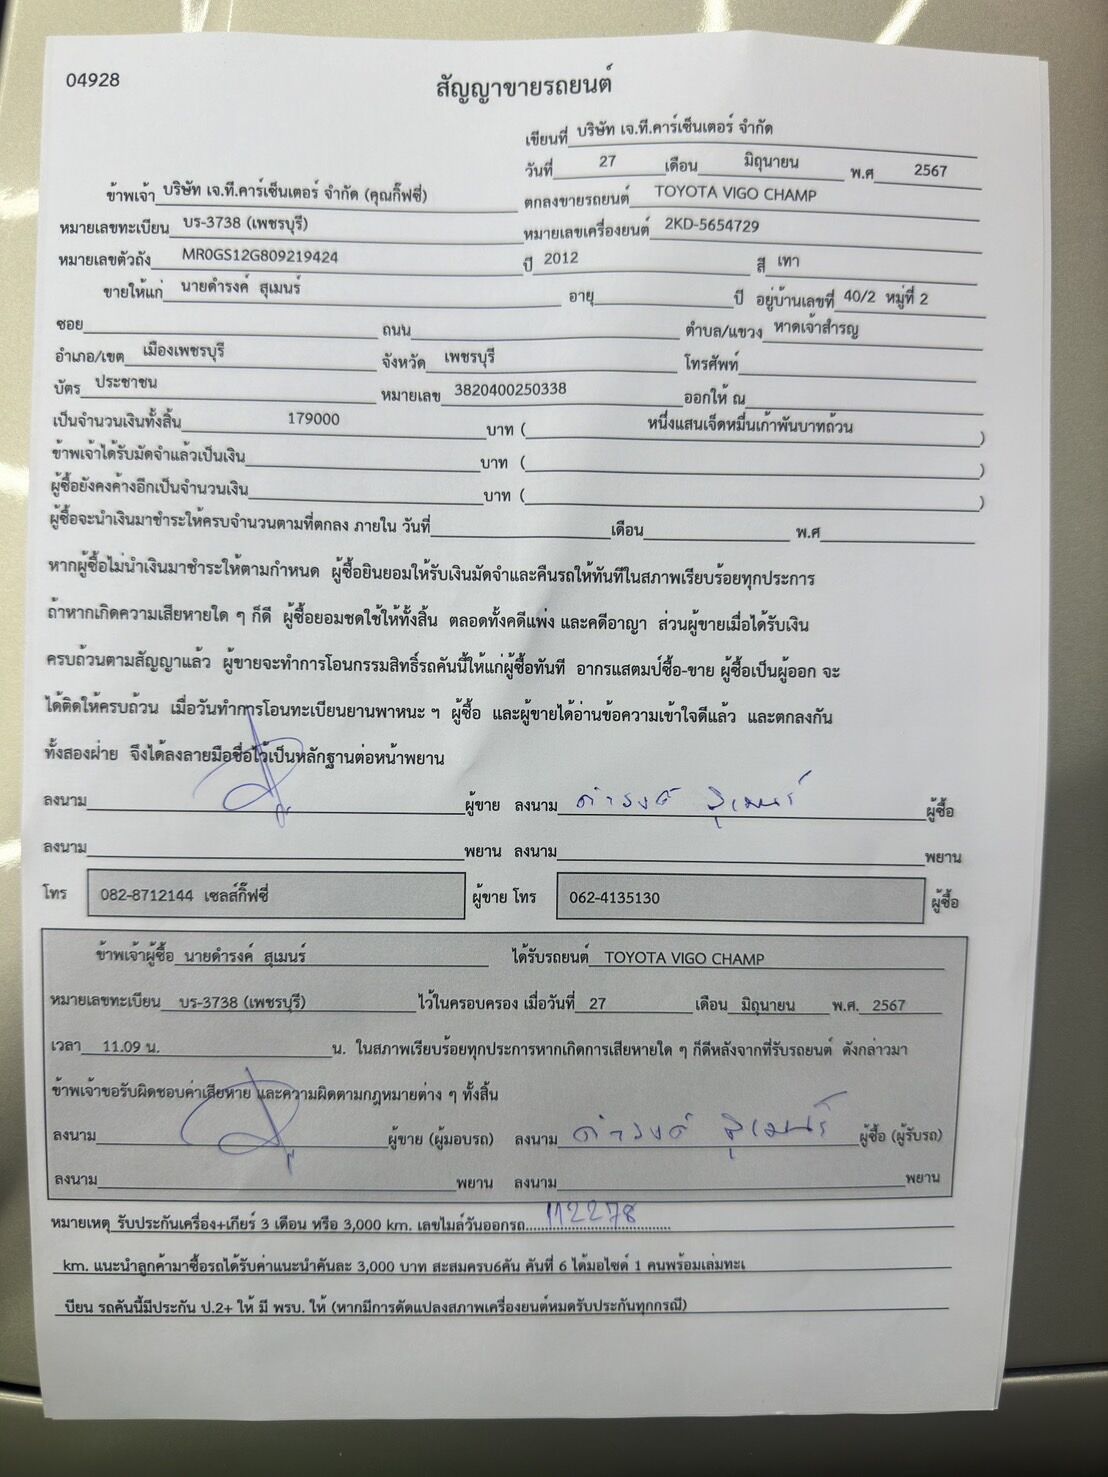 04928
สัญญาขายรถยนต์
เขียนที่ บริษัท เจ.ที.คาร์เซ็นเตอร์ จำกัด
วันที่ 27 เดือน มิถุนายน พ.ศ 2567
ข้าพเจ้า บริษัท เจ.ที.คาร์เซ็นเตอร์ จำกัด (คุณกิ๊ฟซี่) ตกลงขายรถยนต์ TOYOTA VIGO CHAMP
หมายเลขทะเบียน บร-3738 (เพชรบุรี) หมายเลขเครื่องยนต์ 2KD-5654729
หมายเลขตัวถัง MR0GS12G809219424 ปี 2012 สี เทา
ขายให้แก่ นายดำรงค์ สุเมนร์ อายุ ปี อยู่บ้านเลขที่ 40/2 หมู่ที่ 2
ซอย ถนน ตำบล/แขวง หาดเจ้าสำรญ
อำเภอ/เขต เมืองเพชรบุรี จังหวัด เพชรบุรี โทรศัพท์
บัตร ประชาชน หมายเลข 3820400250338 ออกให้ ณ
เป็นจำนวนเงินทั้งสิ้น 179000 บาท ( หนึ่งแสนเจ็ดหมื่นเก้าพันบาทถ้วน )
ข้าพเจ้าได้รับมัดจำแล้วเป็นเงิน บาท ( )
ผู้ซื้อยังคงค้างอีกเป็นจำนวนเงิน บาท ( )
ผู้ซื้อจะนำเงินมาชำระให้ครบจำนวนตามที่ตกลง ภายใน วันที่ เดือน พ.ศ
หากผู้ซื้อไม่นำเงินมาชำระให้ตามกำหนด ผู้ซื้อยินยอมให้รับเงินมัดจำและคืนรถให้ทันทีในสภาพเรียบร้อยทุกประการ
ถ้าหากเกิดความเสียหายใด ๆ ก็ดี ผู้ซื้อยอมชดใช้ให้ทั้งสิ้น ตลอดทั้งคดีแพ่ง และคดีอาญา ส่วนผู้ขายเมื่อได้รับเงิน
ครบถ้วนตามสัญญาแล้ว ผู้ขายจะทำการโอนกรรมสิทธิ์รถคันนี้ให้แก่ผู้ซื้อทันที อากรแสตมป์ซื้อ-ขาย ผู้ซื้อเป็นผู้ออก จะ
ได้ติดให้ครบถ้วน เมื่อวันทำการโอนทะเบียนยานพาหนะ ฯ ผู้ซื้อ และผู้ขายได้อ่านข้อความเข้าใจดีแล้ว และตกลงกัน
ทั้งสองฝ่าย จึงได้ลงลายมือชื่อไว้เป็นหลักฐานต่อหน้าพยาน
ลงนาม ผู้ขาย ลงนาม ดำรงค์ สุเมนร์ ผู้ซื้อ
ลงนาม พยาน ลงนาม พยาน
โทร 082-8712144 เซลส์กิ๊ฟซี่ ผู้ขาย โทร 062-4135130 ผู้ซื้อ
ข้าพเจ้าผู้ซื้อ นายดำรงค์ สุเมนร์ ได้รับรถยนต์ TOYOTA VIGO CHAMP
หมายเลขทะเบียน บร-3738 (เพชรบุรี) ไว้ในครอบครอง เมื่อวันที่ 27 เดือน มิถุนายน พ.ศ. 2567
เวลา 11.09 น. น. ในสภาพเรียบร้อยทุกประการหากเกิดการเสียหายใด ๆ ก็ดีหลังจากที่รับรถยนต์ ดังกล่าวมา
ข้าพเจ้าขอรับผิดชอบค่าเสียหาย และความผิดตามกฎหมายต่าง ๆ ทั้งสิ้น
ลงนาม ผู้ขาย (ผู้มอบรถ) ลงนาม ดำรงค์ สุเมนร์ ผู้ซื้อ (ผู้รับรถ)
ลงนาม พยาน ลงนาม พยาน
หมายเหตุ รับประกันเครื่อง+เกียร์ 3 เดือน หรือ 3,000 km. เลขไมล์วันออกรถ 112278
km. แนะนำลูกค้ามาซื้อรถได้รับค่าแนะนำคันละ 3,000 บาท สะสมครบ6คัน คันที่ 6 ได้มอไซด์ 1 คนพร้อมเล่มทะเ
บียน รถคันนี้มีประกัน ป.2+ ให้ มี พรบ. ให้ (หากมีการดัดแปลงสภาพเครื่องยนต์หมดรับประกันทุกกรณี)